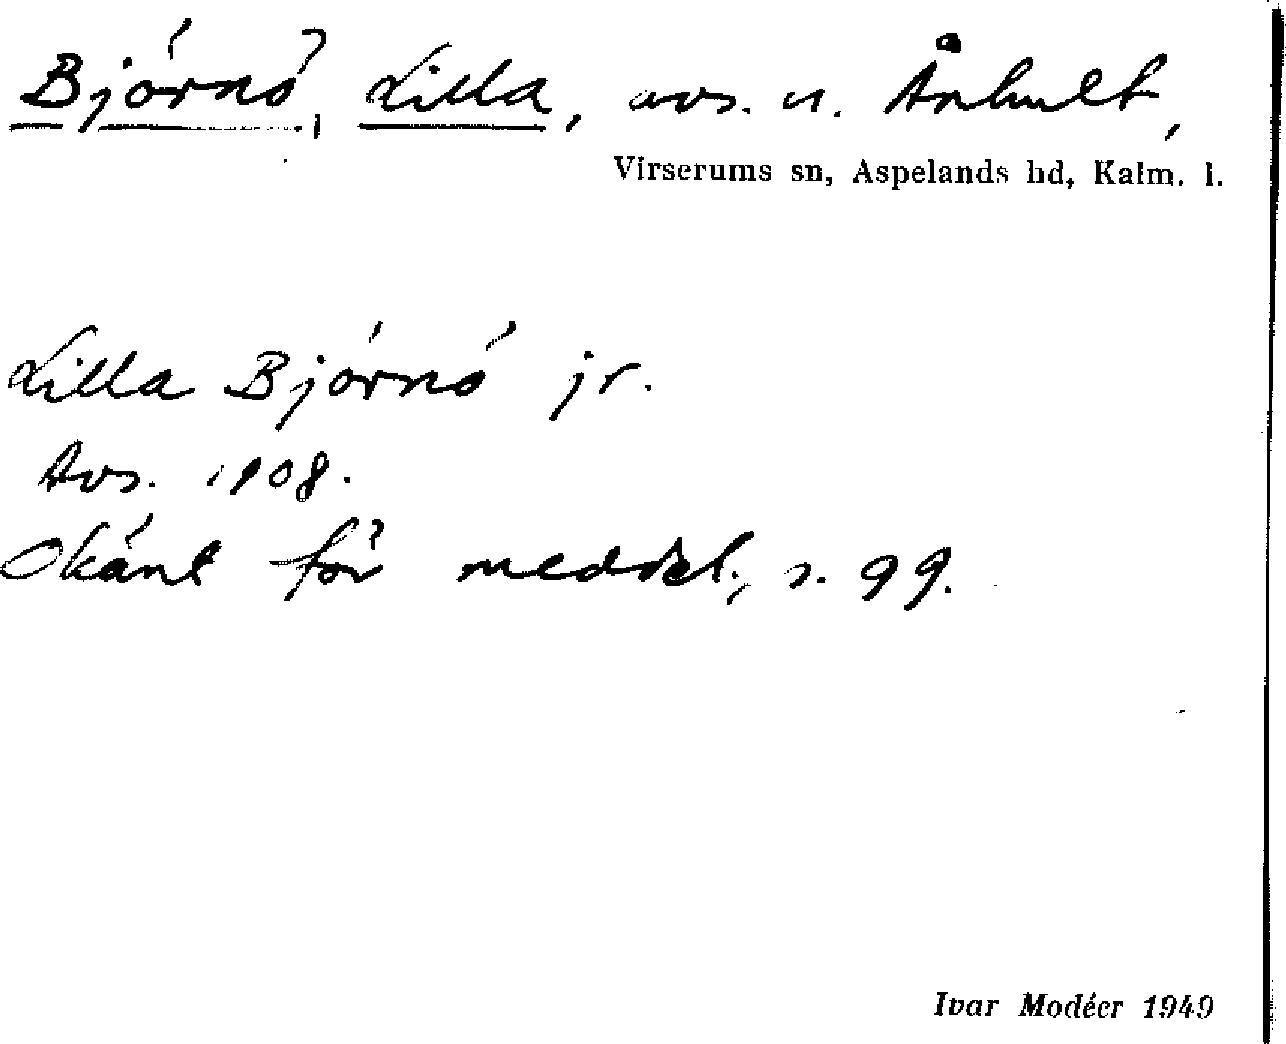 Björnö, Lilla, avs. u. Århult,
Virserums sn, Aspelands hd, Kalm. l.
Lilla Björnö jr.
Avs. 1908.
Okänt för meddel., s. 99.
Ivar Modéer 1949